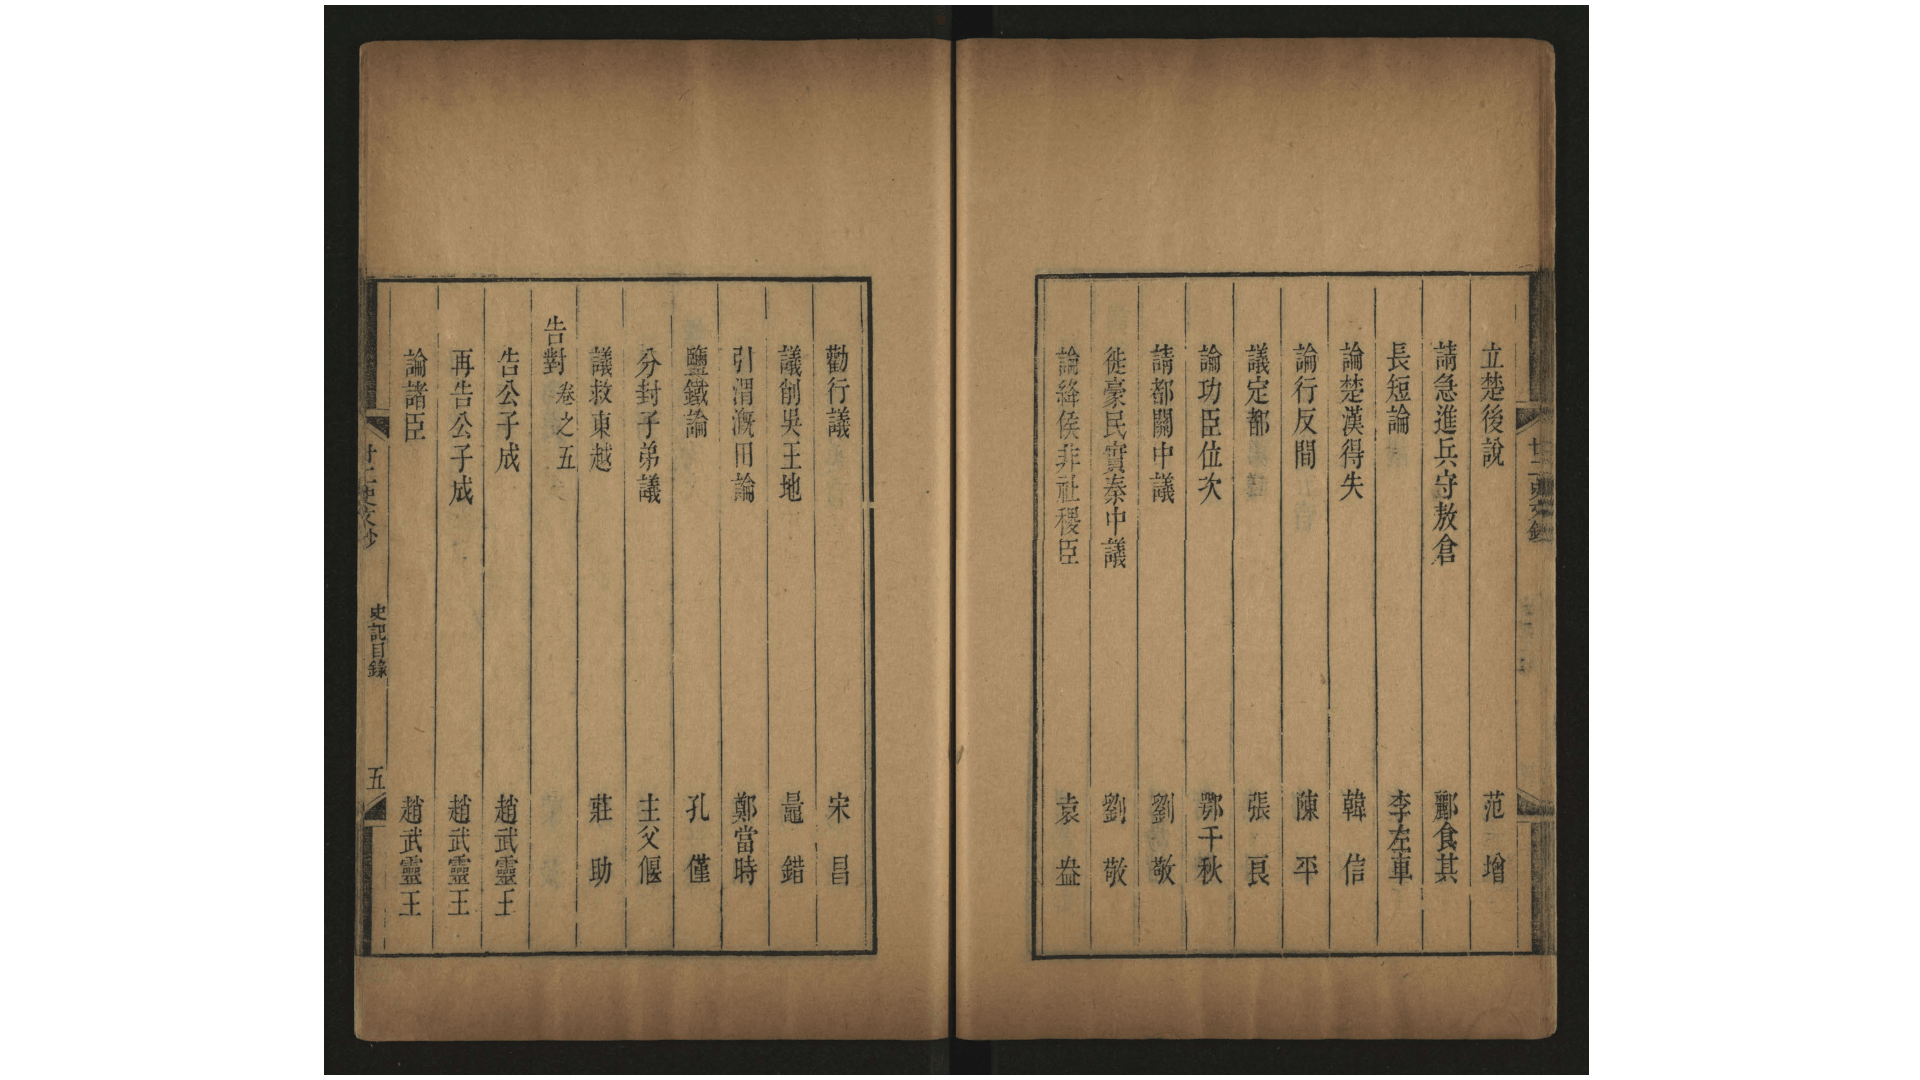 立楚後說 范增
請急進兵守敖倉 酈食其
長短論 李左車
論楚漢得失 韓信
論行反間 陳平
議定都 張良
論功臣位次 鄂千秋
請都關中議 劉敬
徙豪民實秦中議 劉敬
論絳侯非社稷臣 袁盎
勸行議 宋昌
議削吳王地 鼂錯
引渭溉田論 鄭當時
鹽鐵論 孔僅
分封子弟議 主父偃
議救東越 莊助
告對 卷之五
告公子成 趙武靈王
再告公子成 趙武靈王
論諸臣 趙武靈王
史記目錄 五